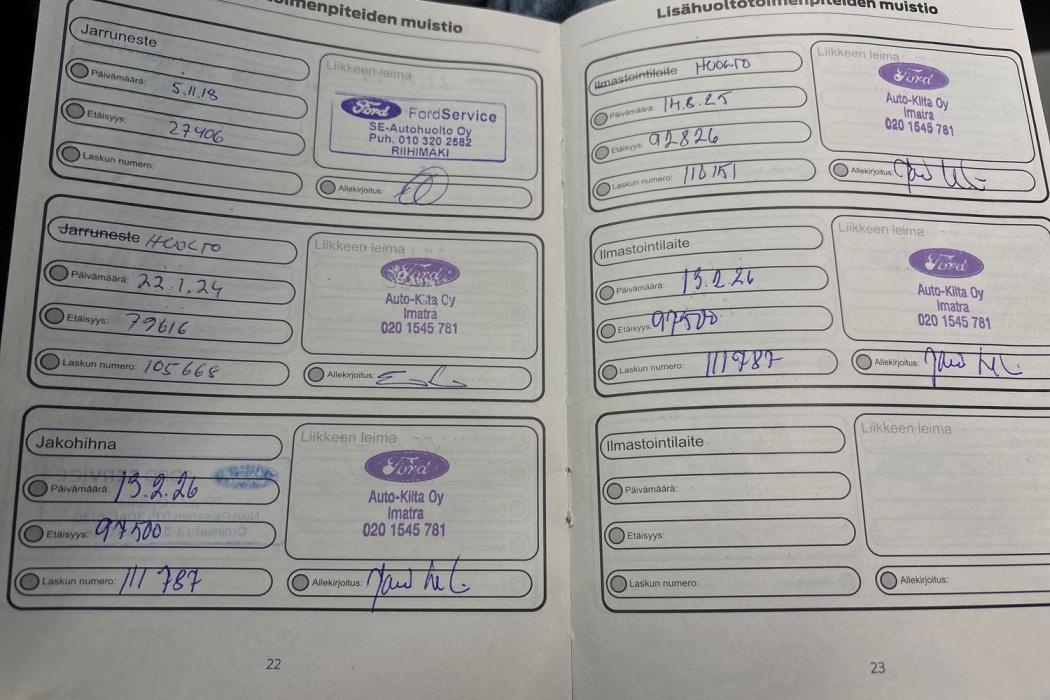 oimenpiteiden muistio
Jarruneste
Päivämäärä: 5.11.18
Etäisyys: 27406
Laskun numero:
Liikkeen leima
Ford FordService
SE-Autohuolto Oy
Puh. 010 320 2582
RIIHIMÄKI
Allekirjoitus:
Jarruneste HUOLTO
Päivämäärä: 22.1.24
Etäisyys: 79616
Laskun numero: 105668
Liikkeen leima
Ford
Auto-Kilta Oy
Imatra
020 1545 781
Allekirjoitus:
Jakohihna
Päivämäärä: 13.2.26
Etäisyys: 97500
Laskun numero: 111787
Liikkeen leima
Ford
Auto-Kilta Oy
Imatra
020 1545 781
Allekirjoitus:
22
Lisähuoltotoimenpiteiden muistio
Ilmastointilaite HUOLTO
Päivämäärä: 14.8.25
Etäisyys: 92826
Laskun numero: 110151
Liikkeen leima
Ford
Auto-Kilta Oy
Imatra
020 1545 781
Allekirjoitus:
Ilmastointilaite
Päivämäärä: 13.2.26
Etäisyys: 97500
Laskun numero: 111787
Liikkeen leima
Ford
Auto-Kilta Oy
Imatra
020 1545 781
Allekirjoitus:
Ilmastointilaite
Päivämäärä:
Etäisyys:
Laskun numero:
Liikkeen leima
Allekirjoitus:
23